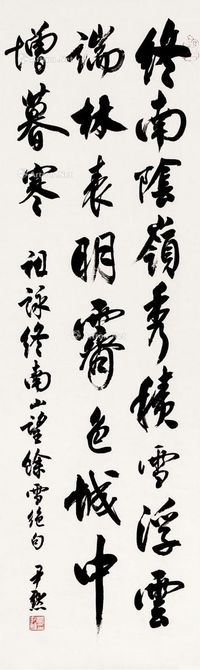 終南陰嶺秀積雪浮雲
端林表明霽色城中
增暮寒
祖詠終南山望餘雪絕句 尹默